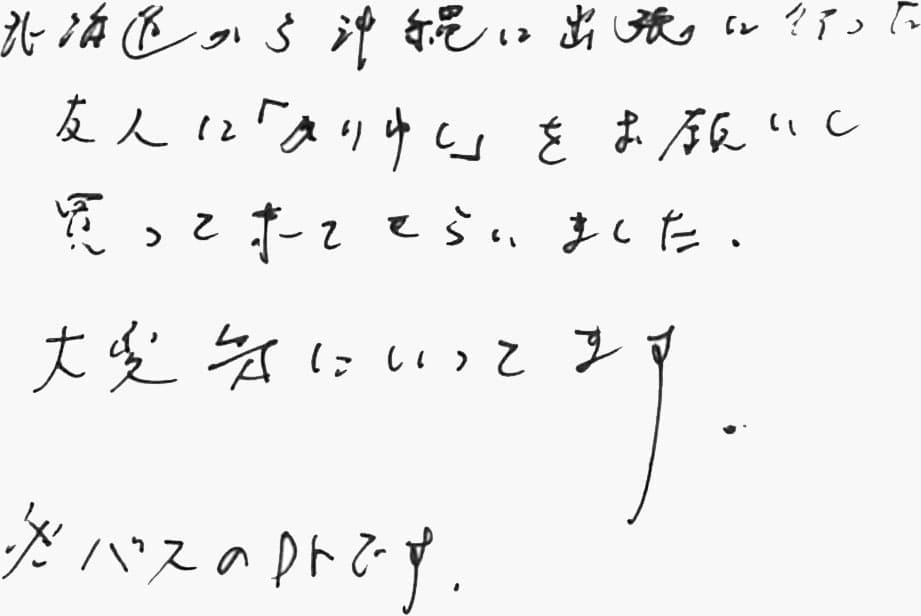 北海道から沖縄に出張に行った
友人に「ありゆし」をお願いし
買って来てもらいました.
大変気にいってます.
バスのDrです.